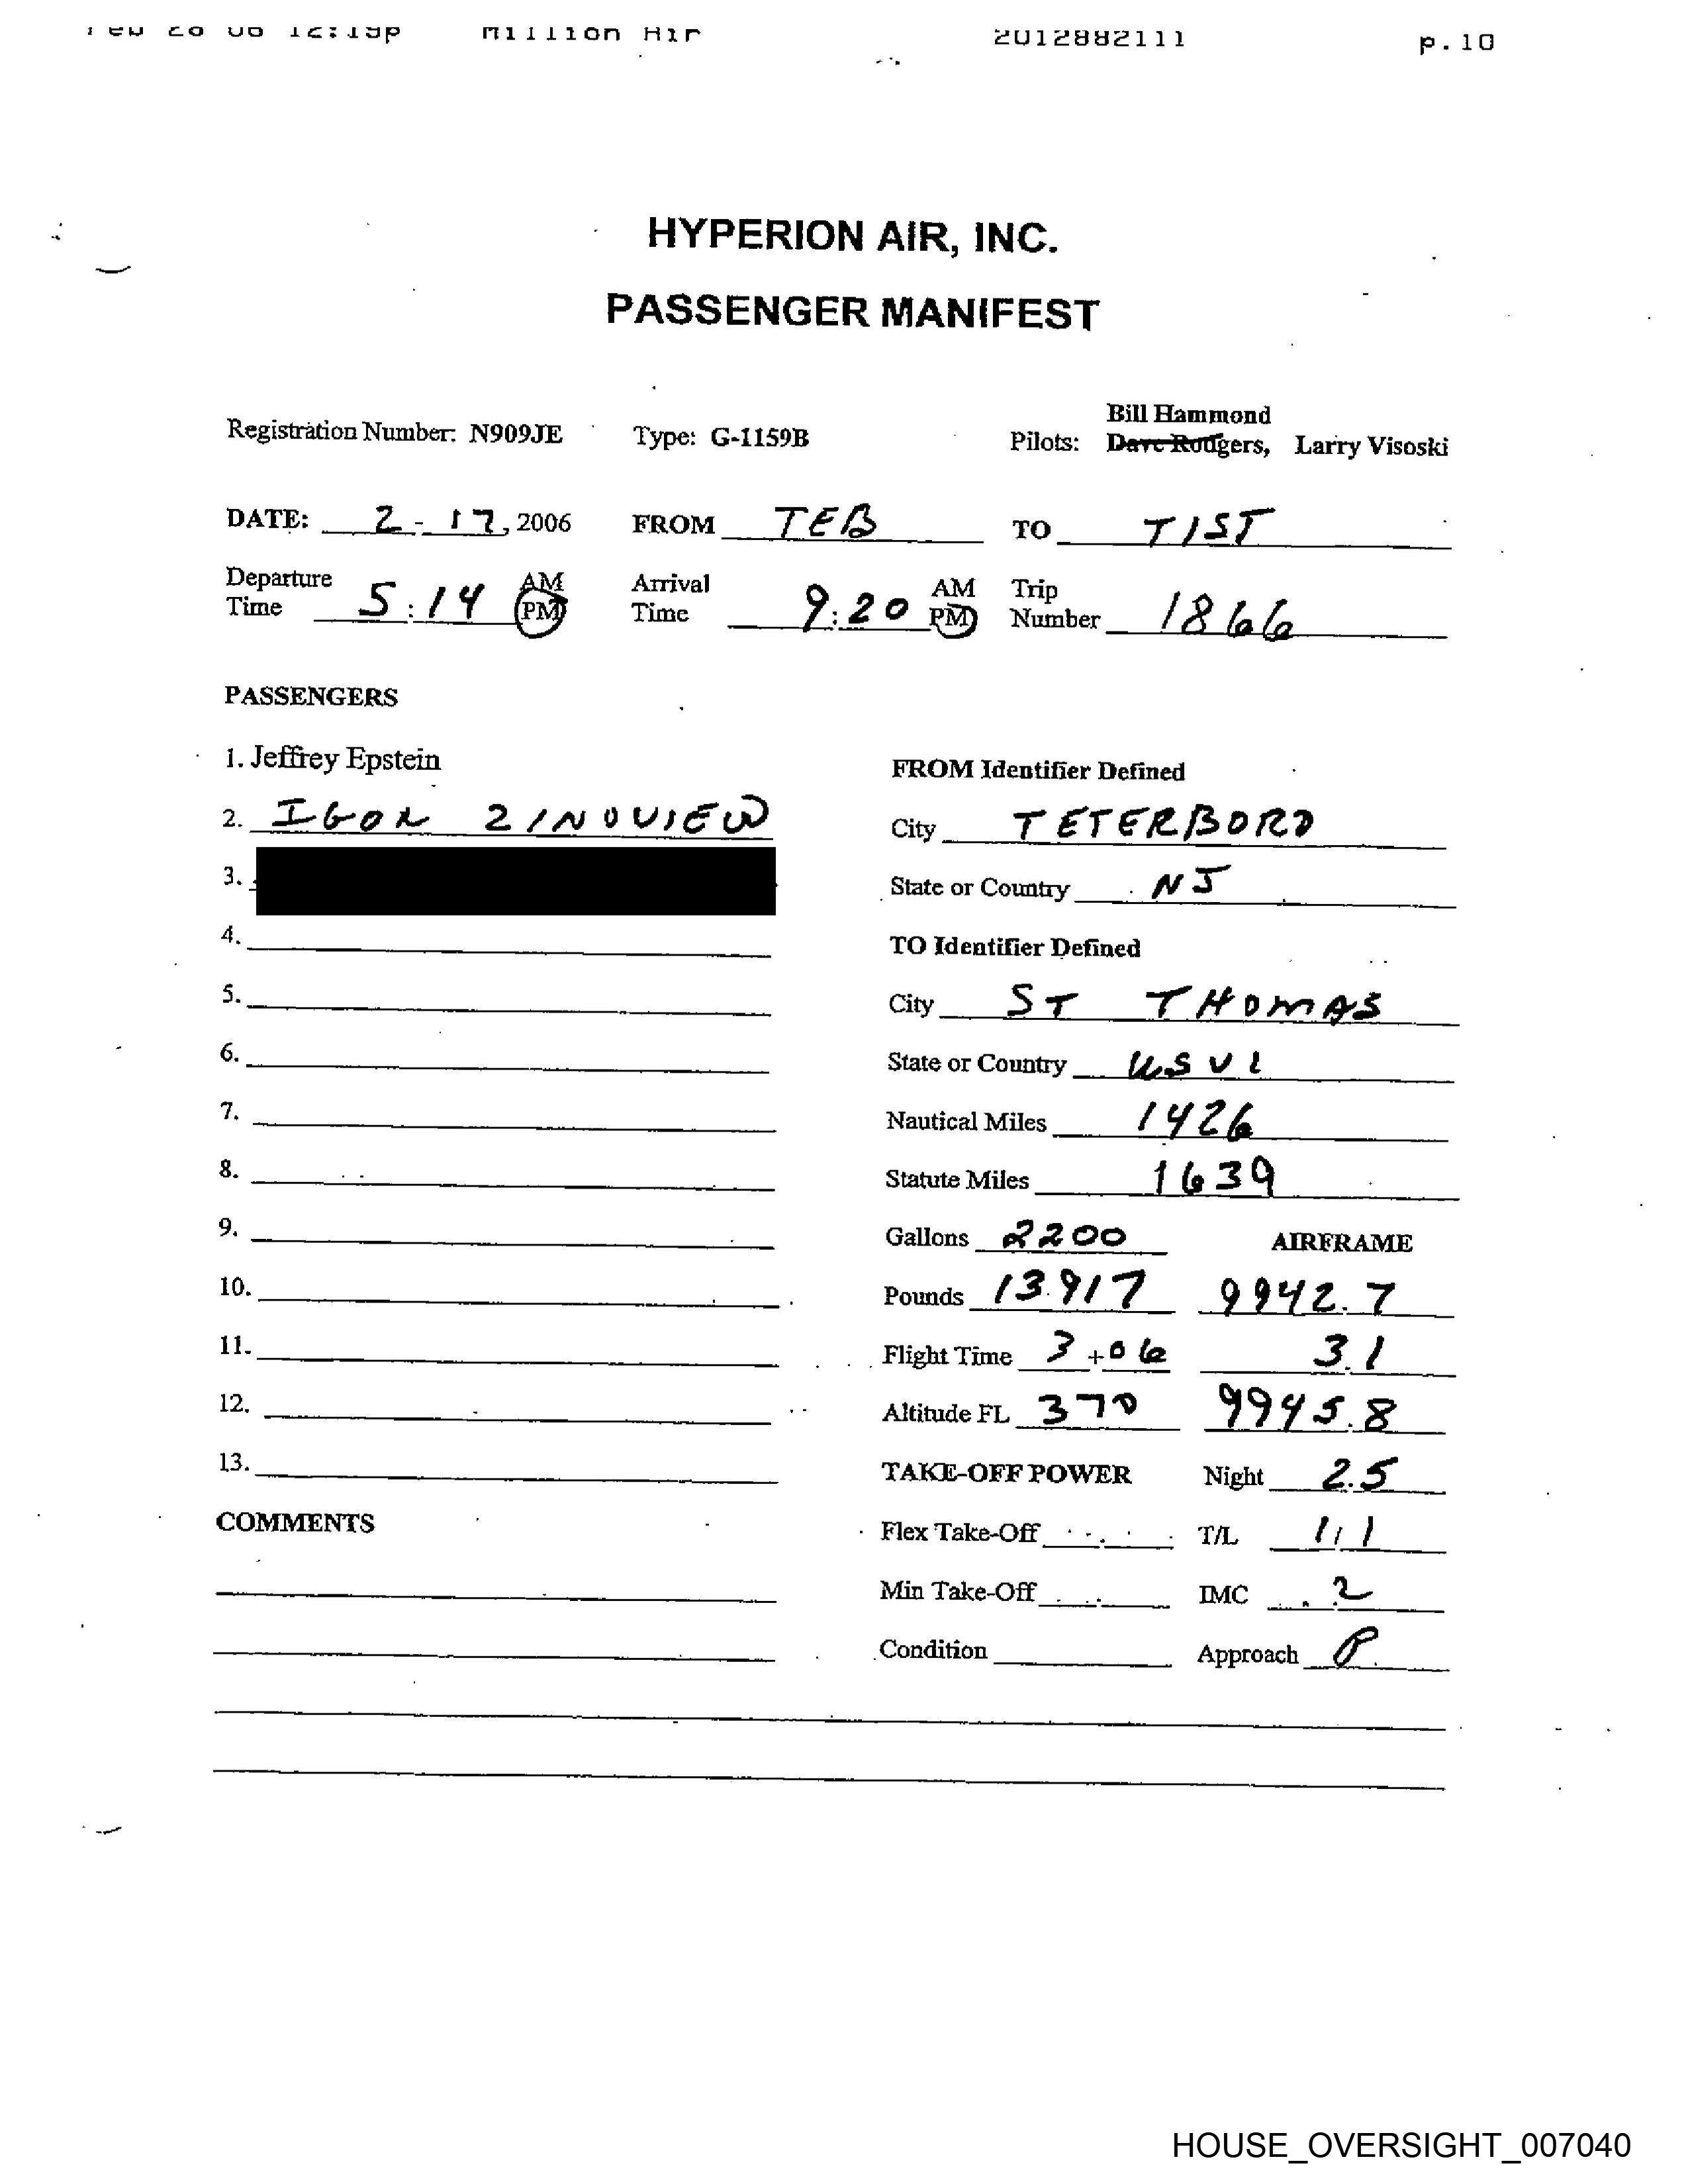 Feb 28 06 12:19p Million Air 2012882111 p.10
HYPERION AIR, INC.
PASSENGER MANIFEST
Bill Hammond
Registration Number: N909JE Type: G-1159B Pilots: Dave Rodgers, Larry Visoski
DATE: 2-17, 2006 FROM TEB TO TIST
Departure Time 5:14 AM PM Arrival Time 9:20 AM PM Trip Number 1866
PASSENGERS
1. Jeffrey Epstein
FROM Identifier Defined
2. IGOR ZINOVIEW
City TETERBORO
3.
State or Country NJ
4.
TO Identifier Defined
5.
City ST THOMAS
6.
State or Country USVI
7.
Nautical Miles 1426
8.
Statute Miles 1639
9.
Gallons 2200 AIRFRAME
10.
Pounds 13917 9942.7
11.
Flight Time 3+06 3.1
12.
Altitude FL 370 9945.8
13.
TAKE-OFF POWER Night 2.5
COMMENTS
Flex Take-Off T/L 1/1
Min Take-Off IMC .2
Condition Approach P
HOUSE_OVERSIGHT_007040